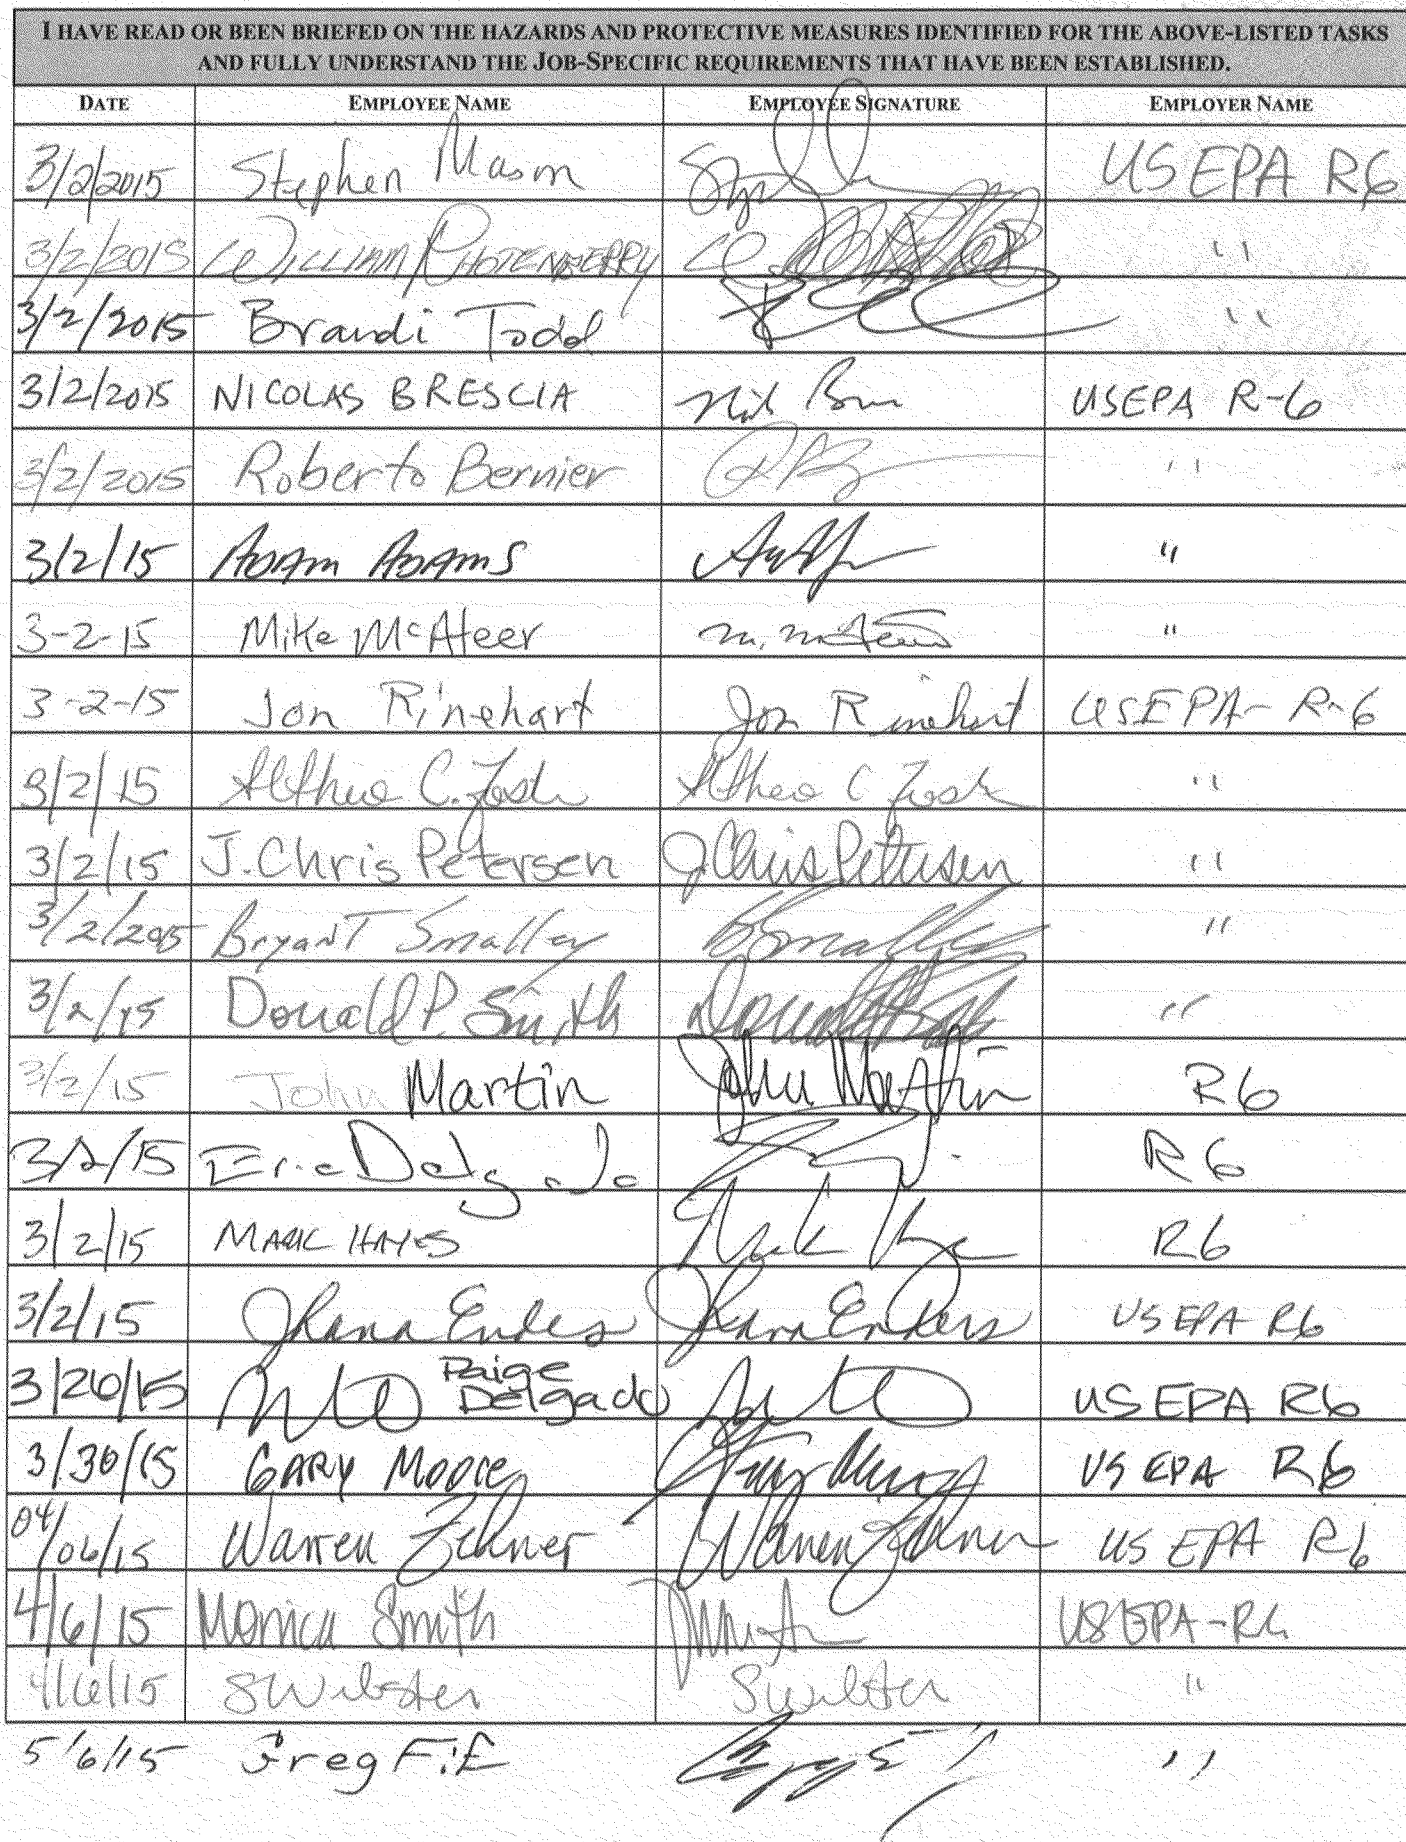 I HAVE READ OR BEEN BRIEFED ON THE HAZARDS AND PROTECTIVE MEASURES IDENTIFIED FOR THE ABOVE-LISTED TASKS
AND FULLY UNDERSTAND THE JOB-SPECIFIC REQUIREMENTS THAT HAVE BEEN ESTABLISHED.
DATE EMPLOYEE NAME EMPLOYEE SIGNATURE EMPLOYER NAME
3/2/2015 Stephen Mason US EPA R6
3/2/2015 WILLIAM RHOTENBERRY "
3/2/2015 Brandi Todd "
3/2/2015 NICOLAS BRESCIA Nick USEPA R-6
3/2/2015 Roberto Bernier "
3/2/15 ADAM ADAMS "
3-2-15 Mike McAteer M. McAteer "
3-2-15 Jon Rinehart Jon Rinehart USEPA- R-6
3/2/15 Althea C. Althea C "
3/2/15 J. Chris Petersen J Chris Petersen "
3/2/2015 Bryant Smalley BSmalley "
3/2/15 Donald P. Smith Donald Smith "
3/2/15 John Martin John Martin R6
3/2/15 Eric Delgado R6
3/2/15 MARK HAYES Mark R6
3/2/15 Rana Enders US EPA R6
3/26/15 Paige Delgado US EPA R6
3/30/15 GARY MOORE Gary Moore US EPA R6
04/06/15 Warren Zehner Warren Zehner US EPA R6
4/6/15 Monica Smith USEPA-R6
4/6/15 SWebster SWebster "
5/6/15 Greg Fife "